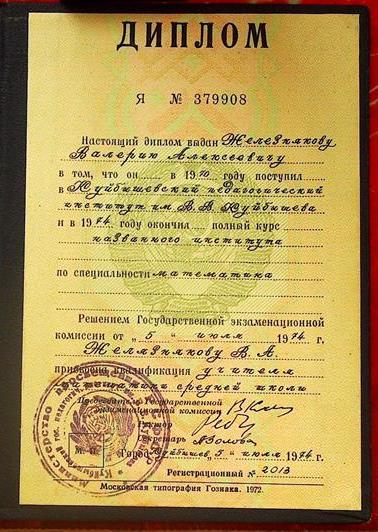 ДИПЛОМ
Я № 379908
Настоящий диплом выдан Железнякову
Валерию Алексеевичу
в том, что он в 1970 году поступил
в Куйбышевский педагогический
институт им В. В. Куйбышева
и в 1974 году окончил полный курс
названного института
по специальности математика
Решением Государственной экзаменационной
комиссии от „5" июля 1974 г.
Железнякову В. А.
присвоена квалификация учителя
математики средней школы
Председатель Государственной
экзаменационной комиссии
Ректор
Секретарь
М. П. Город Куйбышев „5" июля 1974 г.
Регистрационный № 2013
Московская типография Гознака. 1972.